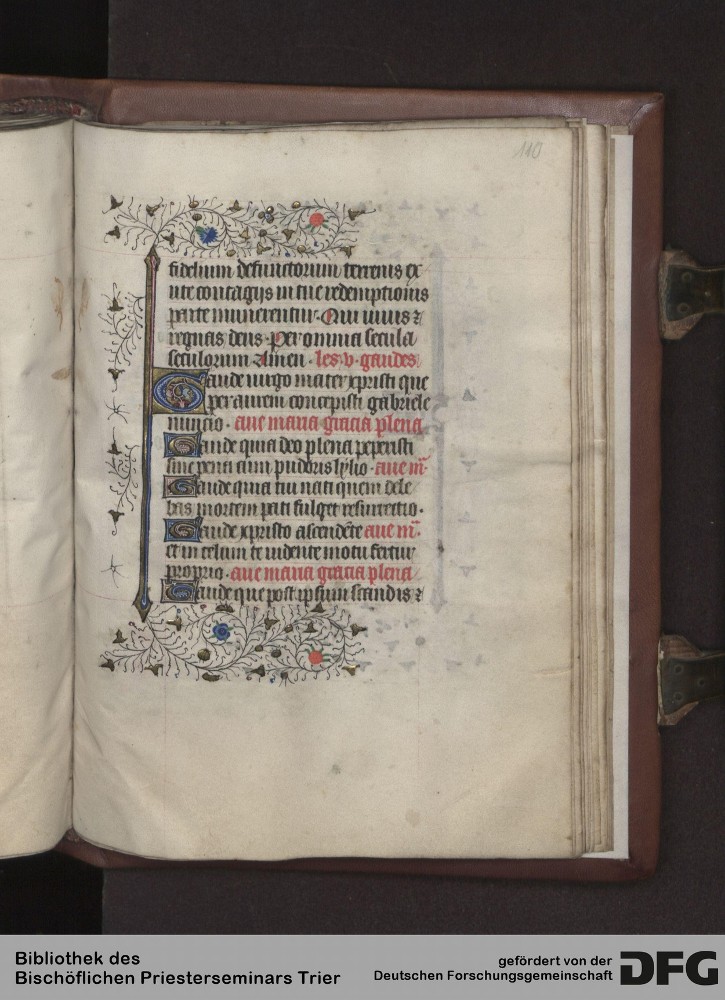 110
fidelium defunctorum terrenis ex
ute contagijs in tue redemptionis
parte numerentur. Qui uiuis ⁊
regnas deus. Per omnia secula
seculorum Amen. les .v. gaudes
Gaude uirgo mater xpristi que
per aurem concepisti gabriele
nuncio. aue maria gracia plena
Gaude quia deo plena peperisti
sine pena cum pudoris lylio. aue m̄.
Gaude quia tui nati quem dole
bas mortem pati fulget resurrectio.
Gaude xpristo ascendēte aue m̄.
et in celum te uidente motu fertur
proprio. aue maria gracia plena
Gaude que post ipsum scandis ⁊
Bibliothek des
Bischöflichen Priesterseminars Trier
gefördert von der
Deutschen Forschungsgemeinschaft
DFG